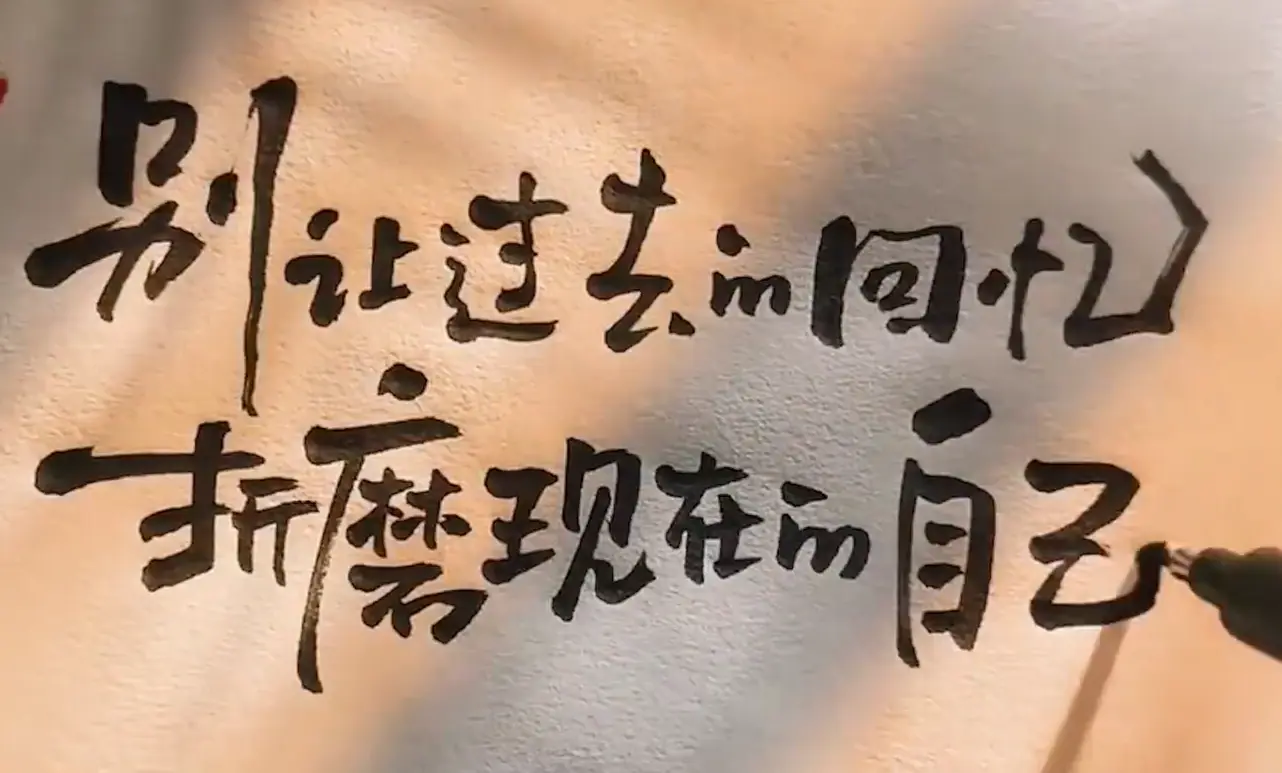 别让过去的回忆
折磨现在的自己